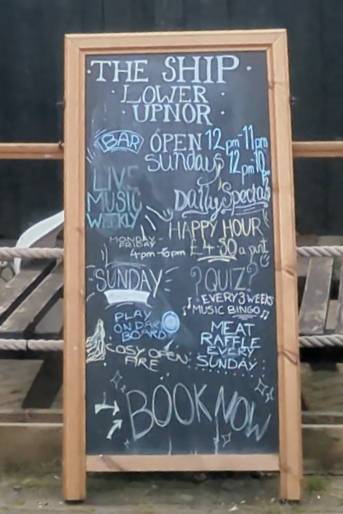 THE SHIP
LOWER
UPNOR
BAR
OPEN 12pm 11pm
Sundays 12pm 10
LIVE
MUSIC
WEEKLY
Daily Specials
HAPPY HOUR
£4.50 a pint
MONDAY
FRIDAY
4pm-6pm
SUNDAY
?QUIZ?
EVERY 3 WEEKS
MUSIC BINGO
PLAY
ON DART
BOARD
MEAT
RAFFLE
EVERY
SUNDAY
COSY OPEN
FIRE
BOOK NOW